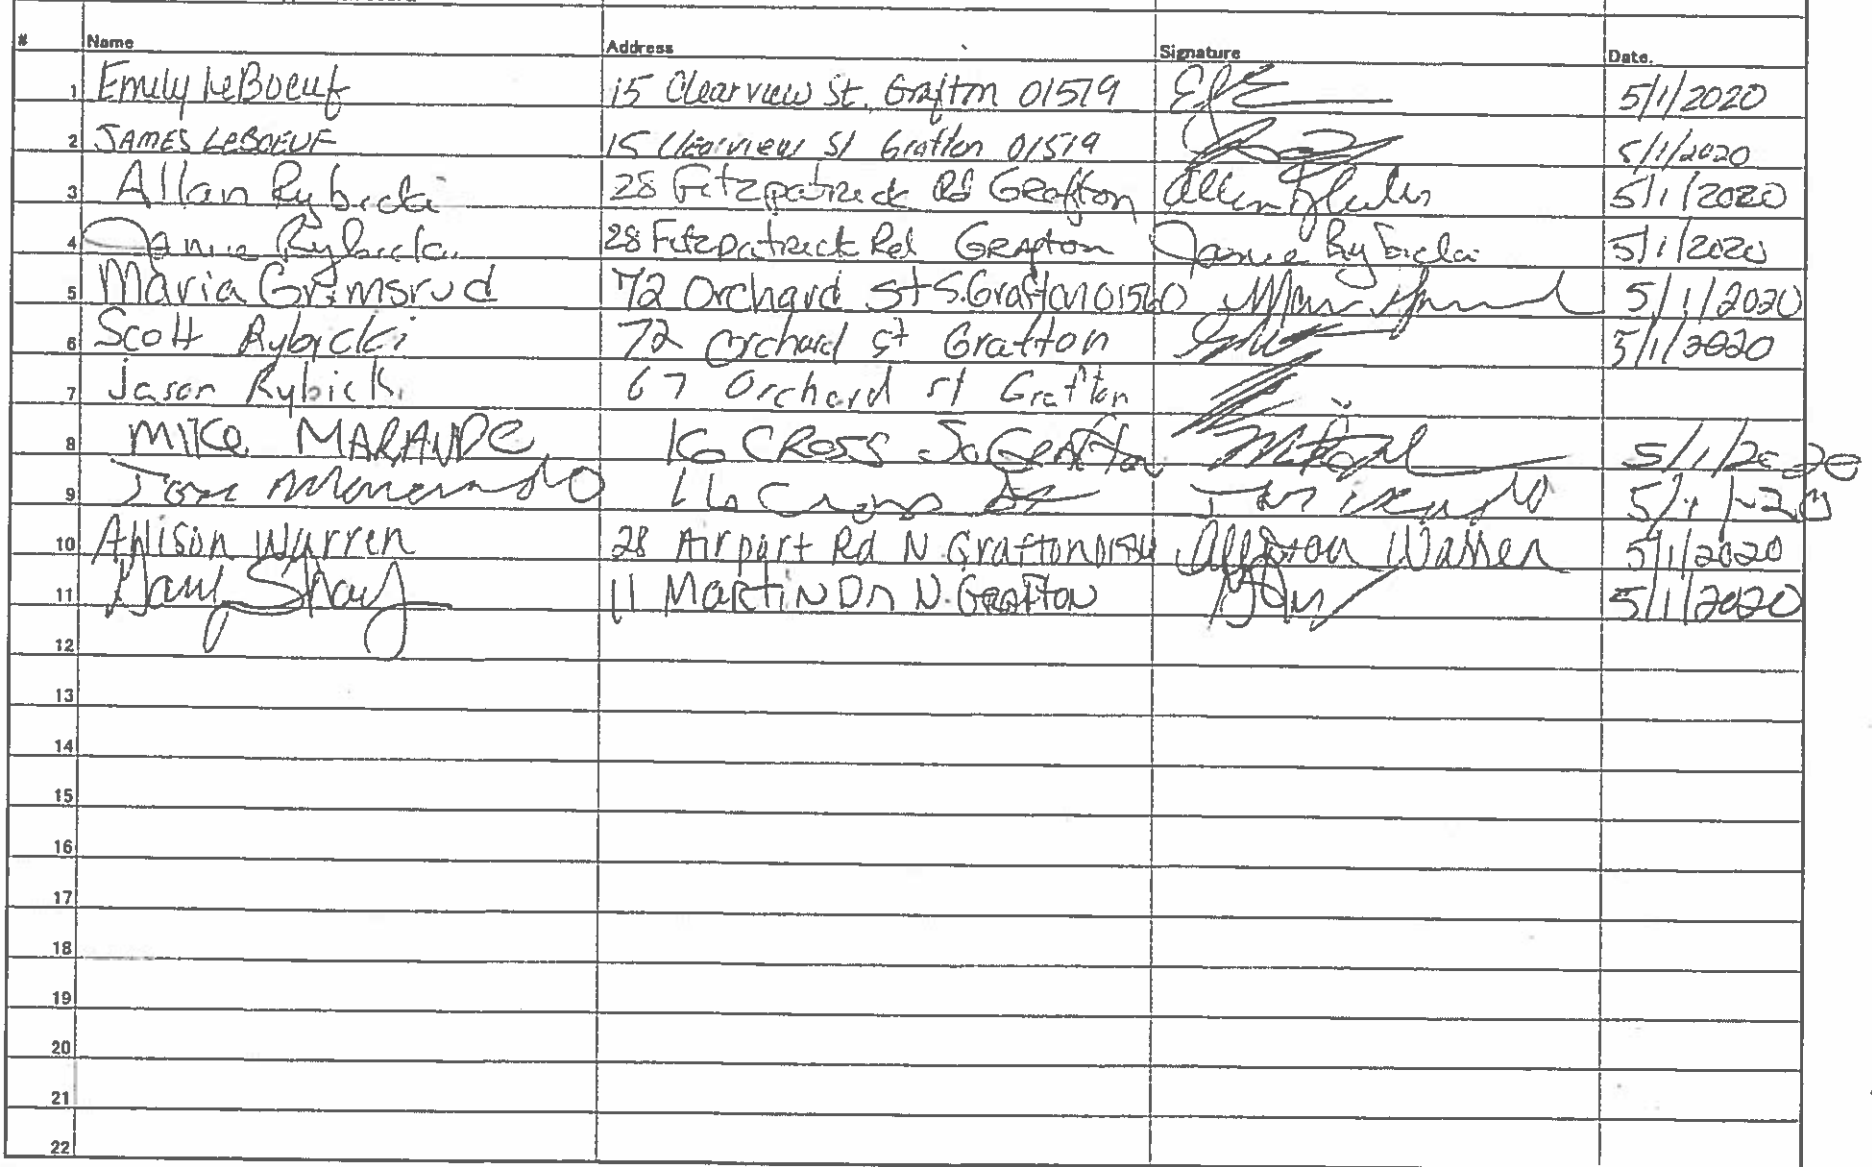 # Name Address Signature Date.
1 Emily LeBoeuf 15 Clearview St. Grafton 01519 5/1/2020
2 JAMES LEBOEUF 15 Clearview St Grafton 01519 5/1/2020
3 Allan Rybicki 28 Fitzpatrick Rd Grafton 5/1/2020
4 Rybicki 28 Fitzpatrick Rd Grafton Rybicki 5/1/2020
5 Maria Grimsrud 72 Orchard St S. Grafton 01560 5/1/2020
6 Scott Rybicki 72 Orchard St Grafton 5/1/2020
7 Jason Rybicki 67 Orchard st Grafton
8 MIKE MARANDO 16 CROSS So Grafton 5/1/2020
9 16 Cross St
10 Allison Warren 28 Airport Rd N. Grafton 01536 Allison Warren 5/1/2020
11 11 Martin Dr N. Grafton 5/1/2020
12
13
14
15
16
17
18
19
20
21
22